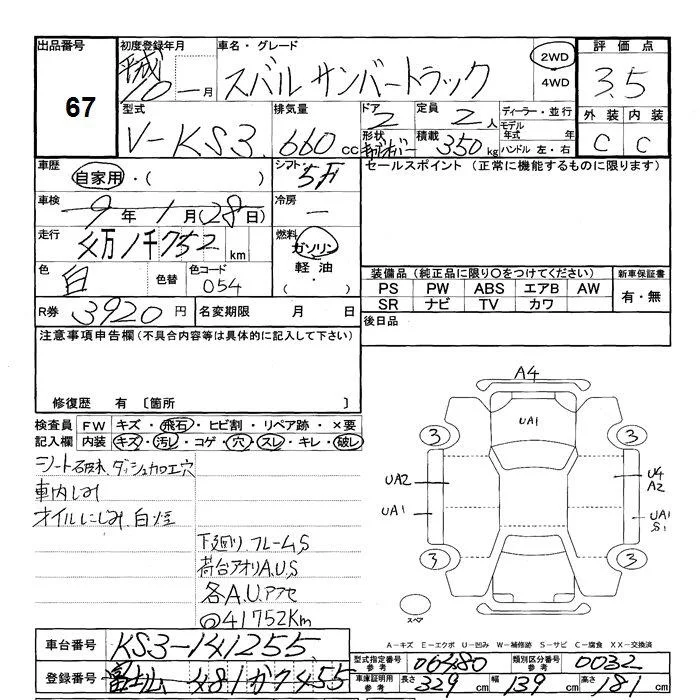 出品番号
67
初度登録年月
平成10年一月
車名・グレード
スバル サンバートラック
2WD
4WD
評価点
3.5
外装 内装
C C
型式
V-KS3
排気量
660 cc
ドア
2
定員
2人
形状
積載
350 kg
ディーラー・並行
モデル年式 年
ハンドル 左・右
車歴
自家用・( )
シフト
5F
セールスポイント (正常に機能するものに限ります)
車検
9年1月(28日)
冷房
—
走行
4万1千752 km
燃料
ガソリン
軽油
・( )
色
白
色替
色コード
054
装備品(純正品に限り○をつけてください)
新車保証書
PS PW ABS エアB AW
SR ナビ TV カワ
有・無
R券
3920円
名変期限 月 日
後日品
注意事項申告欄(不具合内容等は具体的に記入して下さい)
修復歴 有 〔箇所 〕
検査員記入欄
FW キズ・飛石・ヒビ割・リペア跡・×要
内装 キズ・汚レ・コゲ・穴・スレ・キレ・破レ
シート破れ、ダッシュカロエ穴
車内しみ
オイルにじみ、白煙
下廻り、フレームS
荷台アオリA,U,S
各A.U.アフセ
@41752Km
A4
UA1
3
3
UA2
U4
A2
UA1
UA1
S1
3
3
スペア
A-キズ E-エクボ U-凹み W-補修跡 S-サビ C-腐食 XX-交換済
車台番号
KS3-141255
型式指定番号
参考
06480
類別区分番号
参考
0032
登録番号
富士山 481か7455
車庫証明用
参考
長さ
329 cm
幅
139 cm
高さ
181 cm